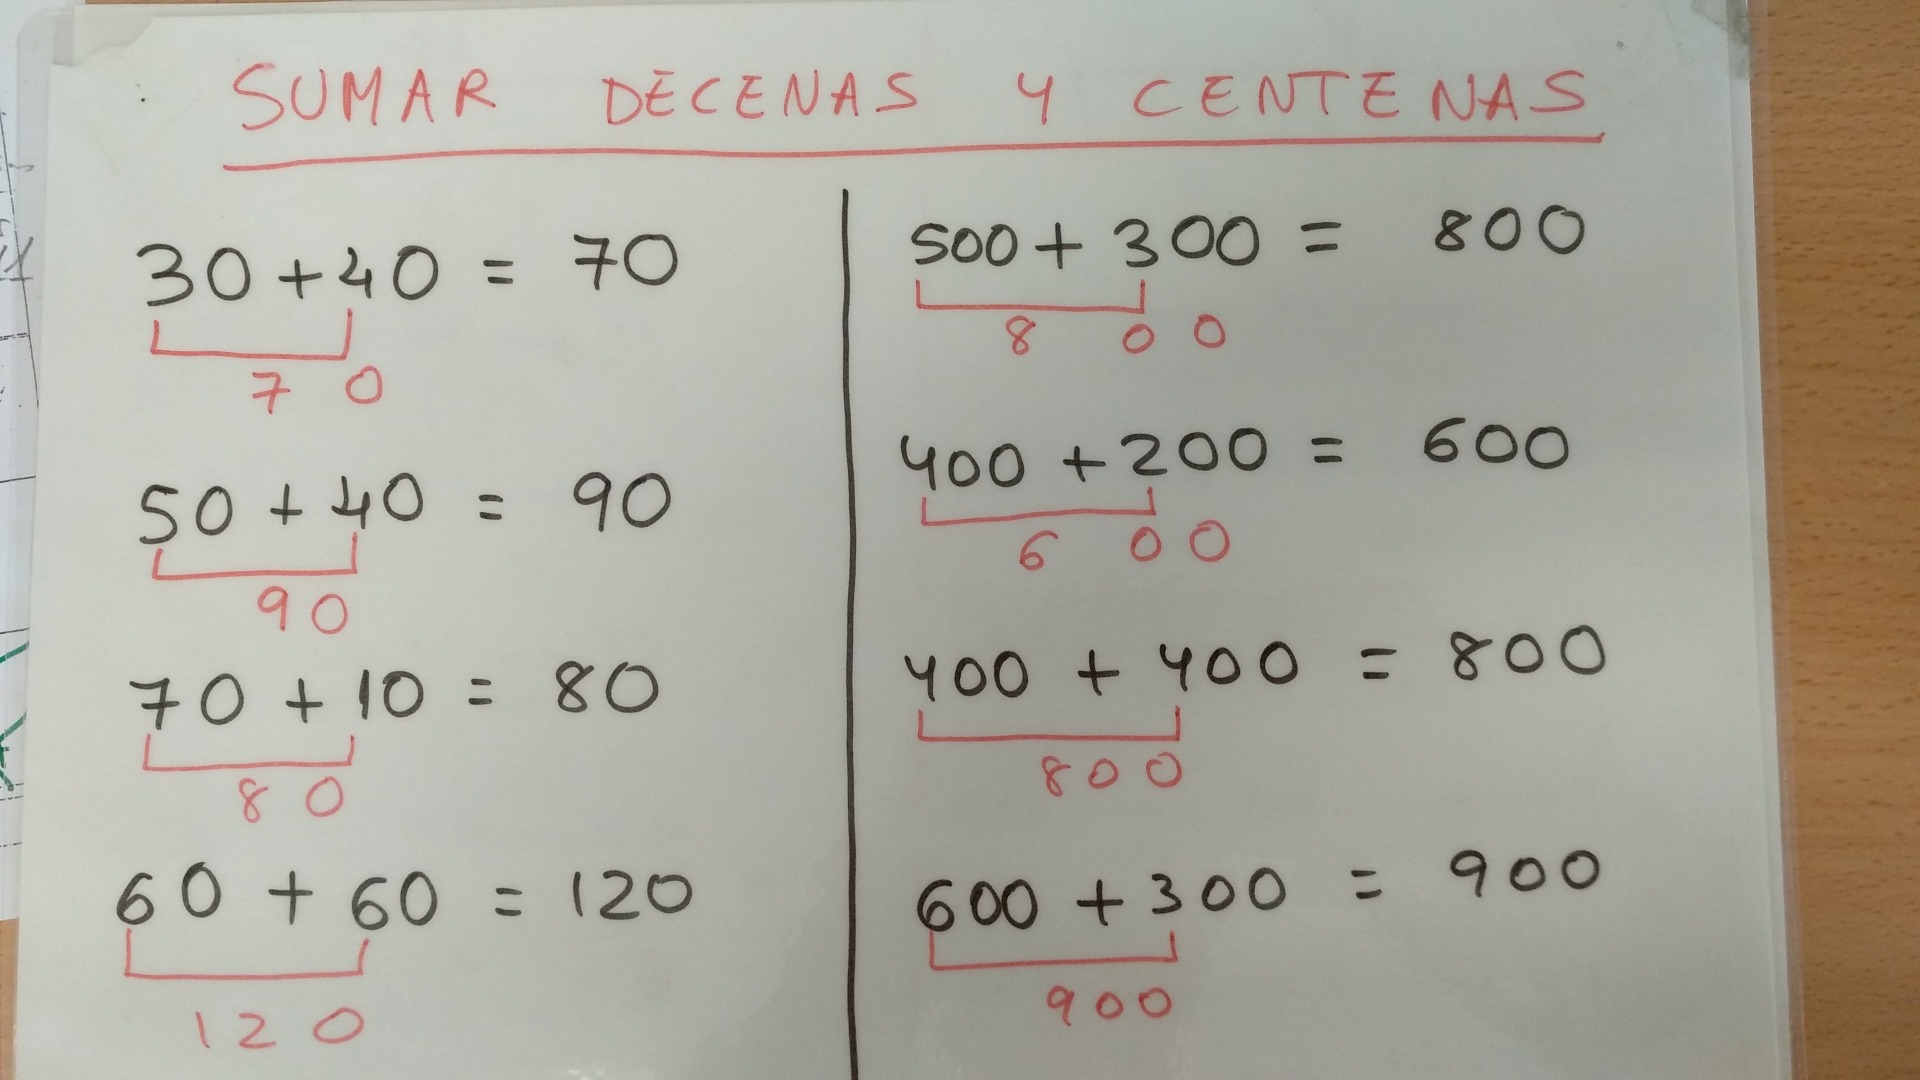 SUMAR DECENAS Y CENTENAS
30 + 40 = 70
7 0
50 + 40 = 90
90
70 + 10 = 80
80
60 + 60 = 120
120
500 + 300 = 800
8 0 0
400 + 200 = 600
6 0 0
400 + 400 = 800
800
600 + 300 = 900
900